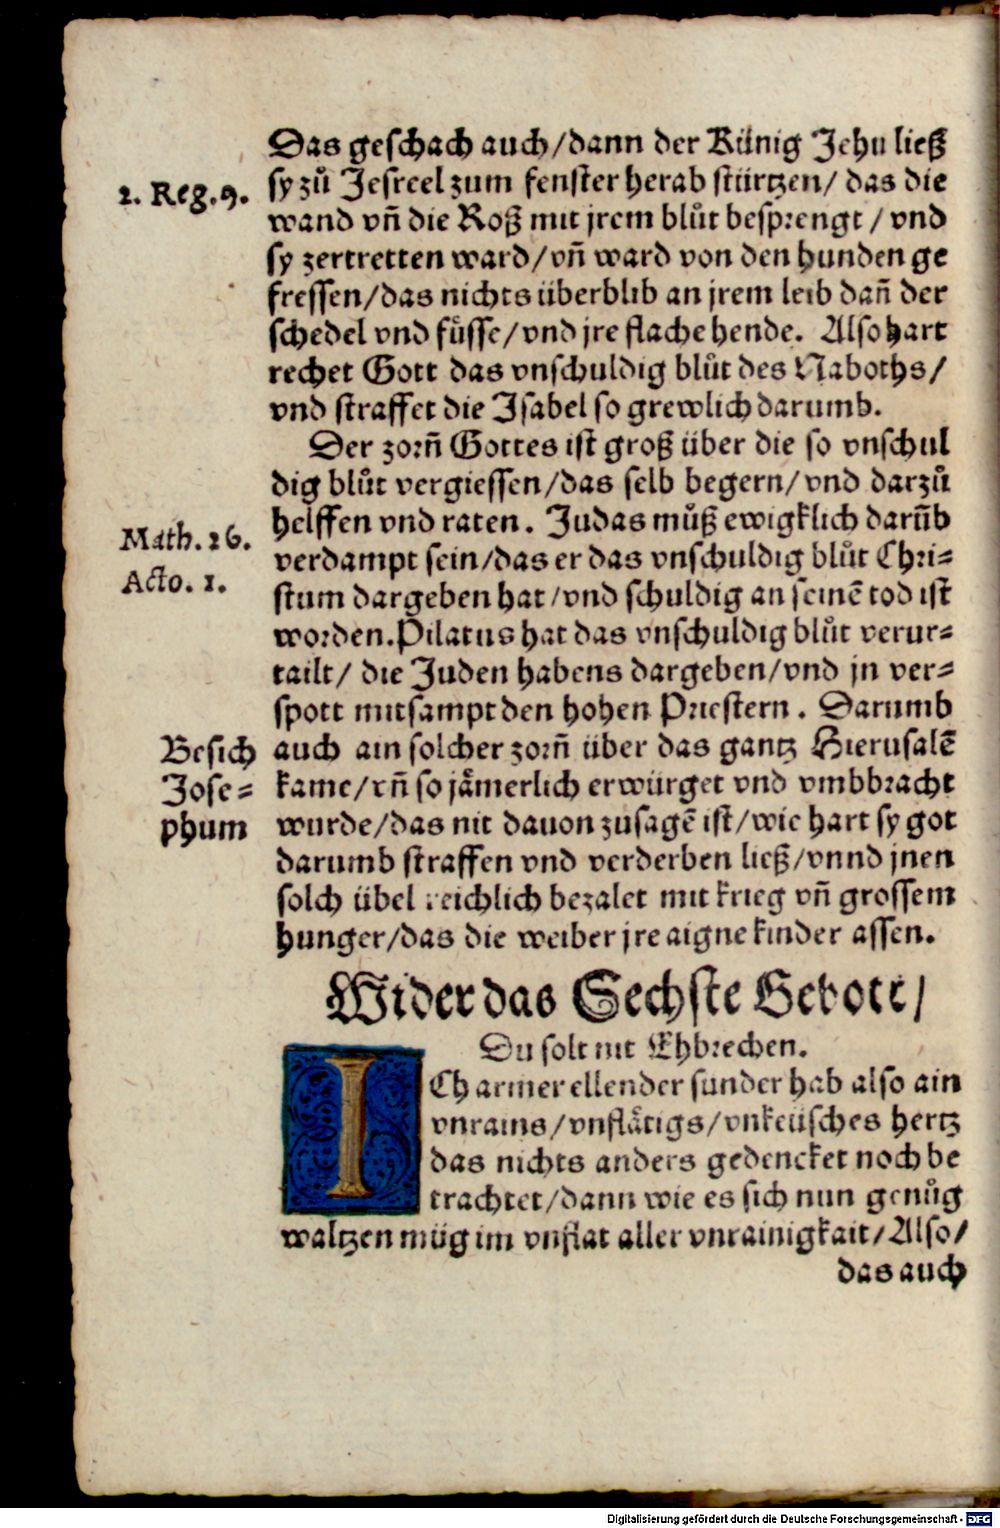 Das geschach auch/dann der Künig Jehu ließ
2. Reg. 9.
sy zů Jesreel zum fenster herab stürtzen/ das die
wand vñ die Roß mit jrem blůt besprengt / vnd
sy zertretten ward/vñ ward von den hunden ge
fressen/das nichts überblib an jrem leib dañ der
schedel vnd fůsse/vnd jre flache hende. Also hart
rechet Gott das vnschuldig blůt des Naboths/
vnd straffet die Isabel so grewlich darumb.
Der zorñ Gottes ist groß über die so vnschul
dig blůt vergiessen/das selb begern/vnd darzů
helffen vnd raten. Judas můß ewigklich darũb
Math. 26.
verdampt sein/das er das vnschuldig blůt Chri=
Acto. 1.
stum dargeben hat/vnd schuldig an seinẽ tod ist
worden. Pilatus hat das vnschuldig blůt verur=
tailt/ die Juden habens dargeben/vnd jn ver=
spott mitsampt den hohen Priestern. Darumb
Besich
auch ain solcher zorñ über das gantz Hierusalẽ
Jose=
kame/vñ so jåmerlich erwürget vnd vmbbracht
phum
wurde/das nit dauon zusagẽ ist/wie hart sy got
darumb straffen vnd verderben ließ/vnnd jnen
solch übel reichlich bezalet mit krieg vñ grossem
hunger/das die weiber jre aigne kinder assen.
Wider das Sechste Gebott/
Du solt nit Ehbrechen.
ICh armer ellender sunder hab also ain
vnrains/vnflåtigs/vnkeüsches hertz
das nichts anders gedencket noch be
trachtet/dann wie es sich nun genůg
waltzen müg im vnflat aller vnrainigkait/Also/
das auch
Digitalisierung gefördert durch die Deutsche Forschungsgemeinschaft - DFG